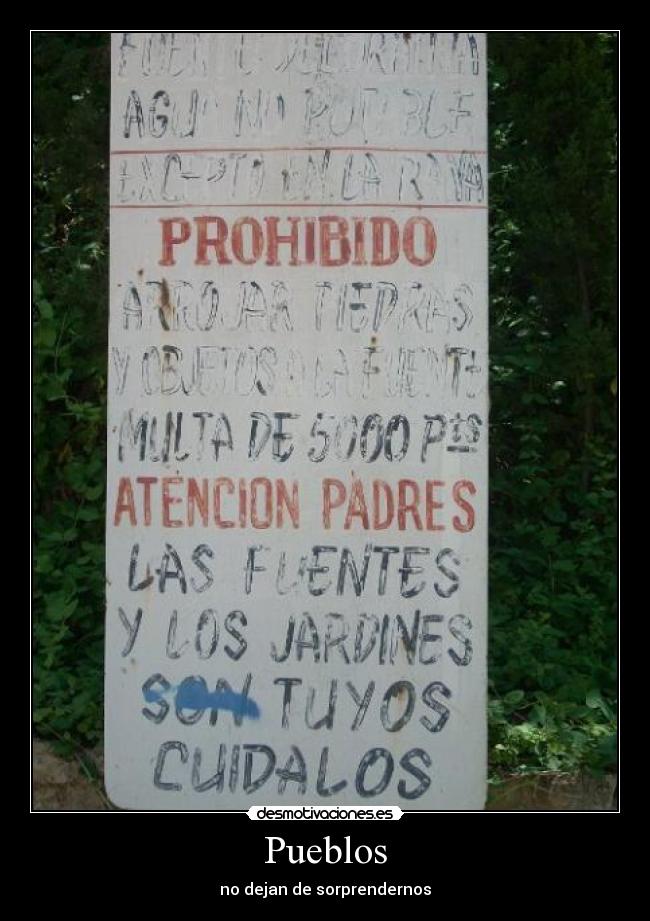 FUENTE DECORATIVA
AGUA NO POTABLE
EXCEPTO EN LA RAYA
PROHIBIDO
ARROJAR PIEDRAS
Y OBJETOS A LA FUENTE
MULTA DE 5000 Pts
ATENCION PADRES
LAS FUENTES
Y LOS JARDINES
SON TUYOS
CUIDALOS
desmotivaciones.es
Pueblos
no dejan de sorprendernos